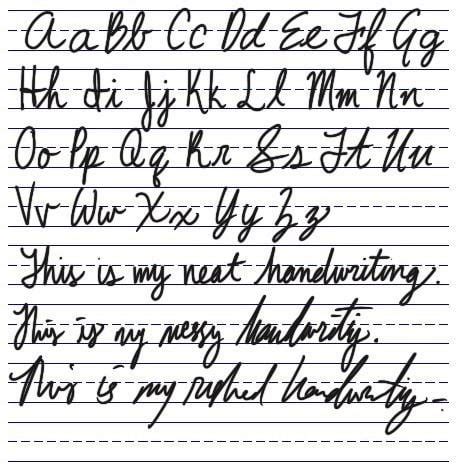 Aa Bb Cc Dd Ee Ff Gg
Hh Ii Jj Kk Ll Mm Nn
Oo Pp Qq Rr Ss Tt Uu
Vv Ww Xx Yy Zz
This is my neat handwriting.
This is my messy handwriting.
This is my rushed handwriting.